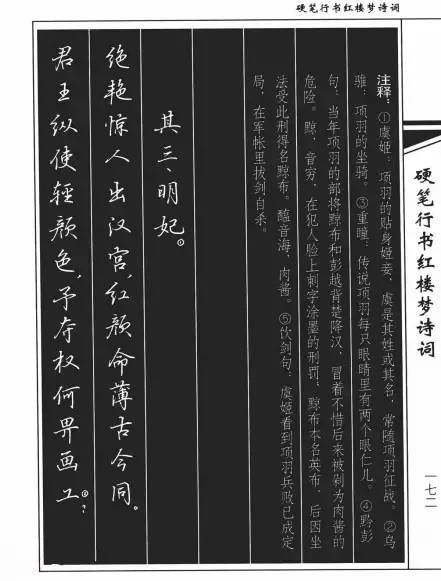 硬笔行书红楼梦诗词
硬笔行书红楼梦诗词
一七二
注释:①虞姬:项羽的贴身姬妾,虞是其姓或其名,常随项羽征战。②乌
骓:项羽的坐骑。③重瞳:传说项羽每只眼睛里有两个眼仁儿。④黥彭
句:当年项羽的部将黥布和彭越背楚降汉,冒着不惜后来被剁为肉酱的
危险。黥,音穷,在犯人脸上刺字涂墨的刑罚,黥布本名英布,后因坐
法受此刑得名黥布。醢音海,肉酱。⑤饮剑句:虞姬看到项羽兵败已成定
局,在军帐里拔剑自杀。
其三、明妃①
绝艳惊人出汉宫,红颜命薄古今同。
君王纵使轻颜色,予夺权何畀画工②?